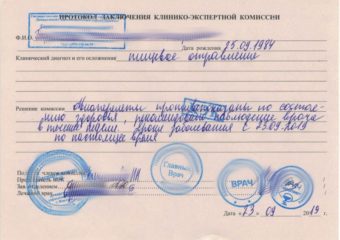 ПРОТОКОЛ ЗАКЛЮЧЕНИЯ КЛИНИКО-ЭКСПЕРТНОЙ КОМИССИИ
Ф.И.О.
Дата рождения 25.09.1984
Клинический диагноз и его осложнения пищевое отравление
Решение комиссии Авиаперелеты противопоказаны по состоя-
нию здоровья, рекомендовано наблюдение врача
в течение недели. Сроки заболевания с 23.09.2019
по настоящее время
Председатель
Зав. отделением
Леч. врач
Главный Врач
ВРАЧ
Дата «23» 09 2019 г.